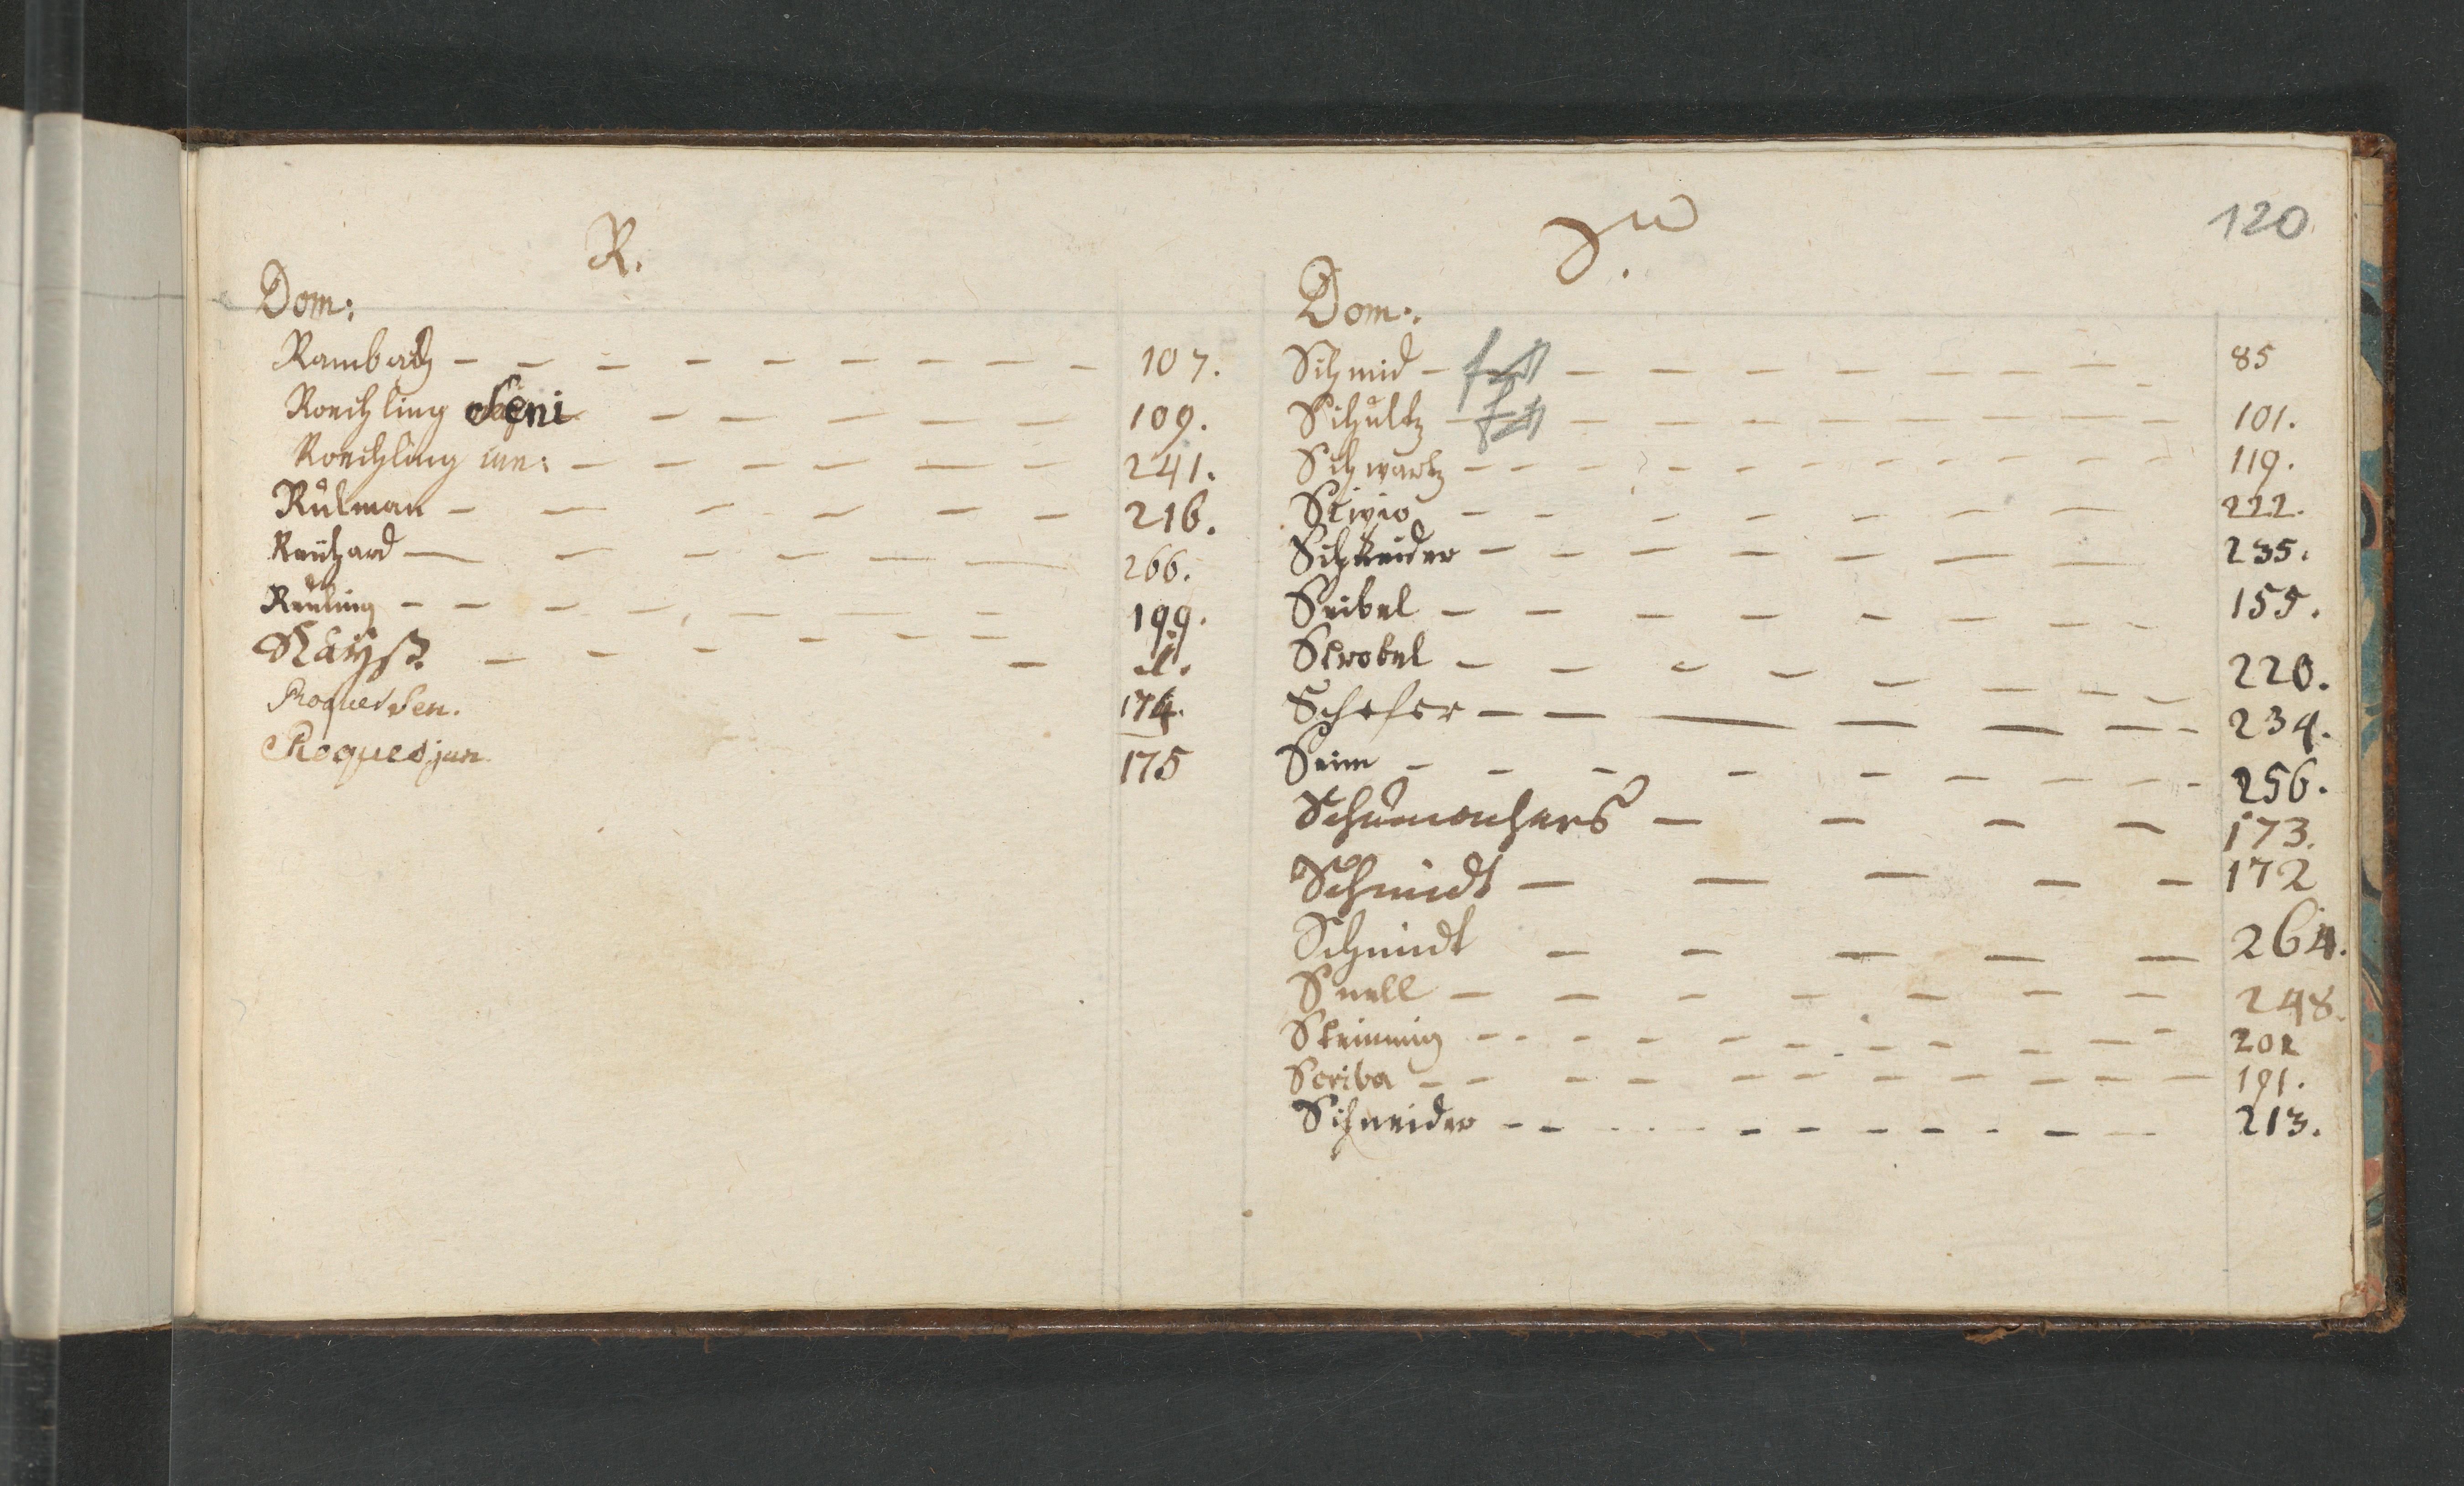 120
R.
Dom:
Rambach 107.
Roechling Seni 109.
Roechling iun: 241.
Rulman 216.
Reuhard 266.
Reuling 199.
Rayß 2.
Roques Sen. 174.
Roques jun. 175
S.
Dom:
Schmid 85
Schultz 101.
Schwartz 119.
Stivio 222.
Schneider 235.
Seibel 155.
Strobel 220.
Schefer 234.
Seim 256.
Schumachers 173.
Schmidt 172
Schmidt 264.
Snell 248.
Steinmig 202
Scriba 191.
Schneider 213.